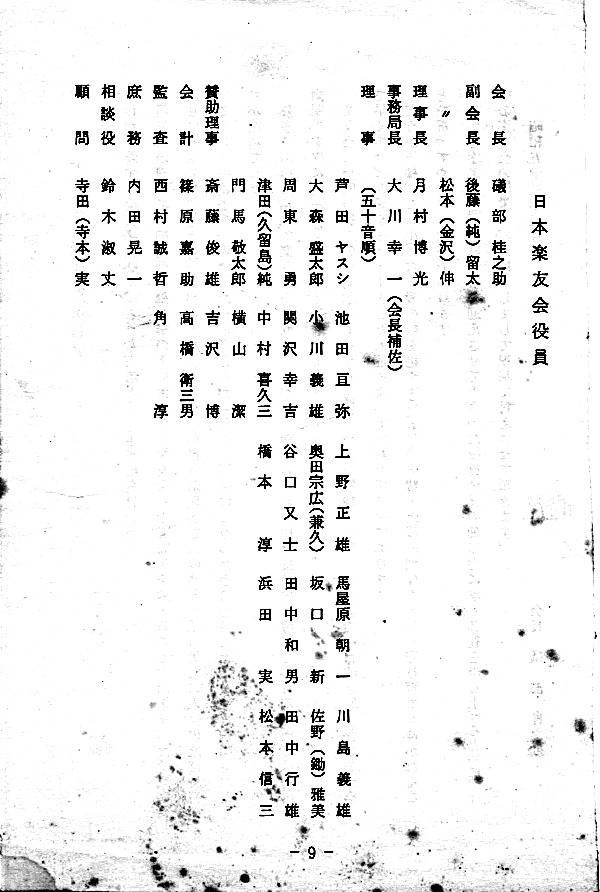 日本楽友会役員
会長　磯部桂之助
副会長　後藤（純）留太
〃　松本（金沢）伸
理事長　月村博光
事務局長　大川幸一（会長補佐）
理事　（五十音順）
芦田ヤスシ　池田亘弥　上野正雄　馬屋原朝一　川島義雄
大森盛太郎　小川義雄　奥田宗広（兼久）　坂口新　佐野（鋤）雅美
周東勇　関沢幸吉　谷口又士　田中和男　田中行雄
津田（久留島）純　中村喜久三　橋本淳　浜田実　松本信三
門馬敬太郎　横山潔
賛助理事　斎藤俊雄　吉沢博
会計　篠原嘉助　高橋衛三男
監査　西村誠哲　角淳
庶務　内田晃一
相談役　鈴木淑丈
顧問　寺田（寺本）実
- 9 -